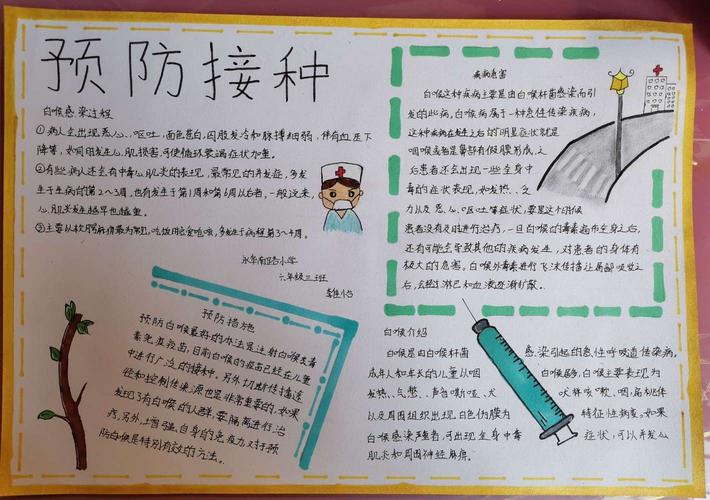 预防接种
白喉感染过程
①病人会出现恶心、呕吐,面色苍白,四肢发冷和脉搏细弱,伴有血压下
降等,如同时发生心肌损害,可使循环衰竭症状加重。
②有些病人还会有中毒心肌炎的表现,最常见的并发症,多发
生于生病的第2~3周,也有发生于第1周和第6周以后者,一般说来,
心肌炎发生越早也越重。
③主要从软腭麻痹最为常见,吃饭时会呛咳,多发生于病程第3~4周。
小学
六年级三班
预防措施
预防白喉最好的办法是注射白喉类毒
素免疫疫苗,目前白喉的疫苗已经在儿童
中进行广泛的接种。另外切断传播途
径和控制传染源也是非常重要的,如果
发现了有白喉的人群,要隔离进行治
疗,另外,增强自身的免疫力对于预
防白喉是特别有效的方法。
疾病危害
白喉这种疾病主要是由白喉杆菌感染而引
发的此病,白喉病属于一种急性传染疾病,
这种疾病在发生之后的明显症状就是
咽喉或者是鼻部有假膜形成,之
后患者还会出现一些全身中
毒的症状表现,如发热、乏
力以及恶心、呕吐等症状,要是这个时候
患者没有及时进行治疗,一旦白喉的毒素遍布全身之后,
还有可能会导致其他的疾病发生,对患者的身体有
极大的危害,白喉外毒素进行飞沫传播让局部吸收之
后,会经过淋巴和血液逐渐扩散。
白喉介绍
白喉是由白喉杆菌感染引起的急性呼吸道传染病,
成年人和年长的儿童以咽白喉居多,白喉主要表现为
发热、气憋、声音嘶哑、犬吠样咳嗽、咽、扁桃体
以及周围组织出现白色伪膜为特征性病变,如果
白喉感染严重者,可出现全身中毒症状,可以并发心
肌炎和周围神经麻痹。